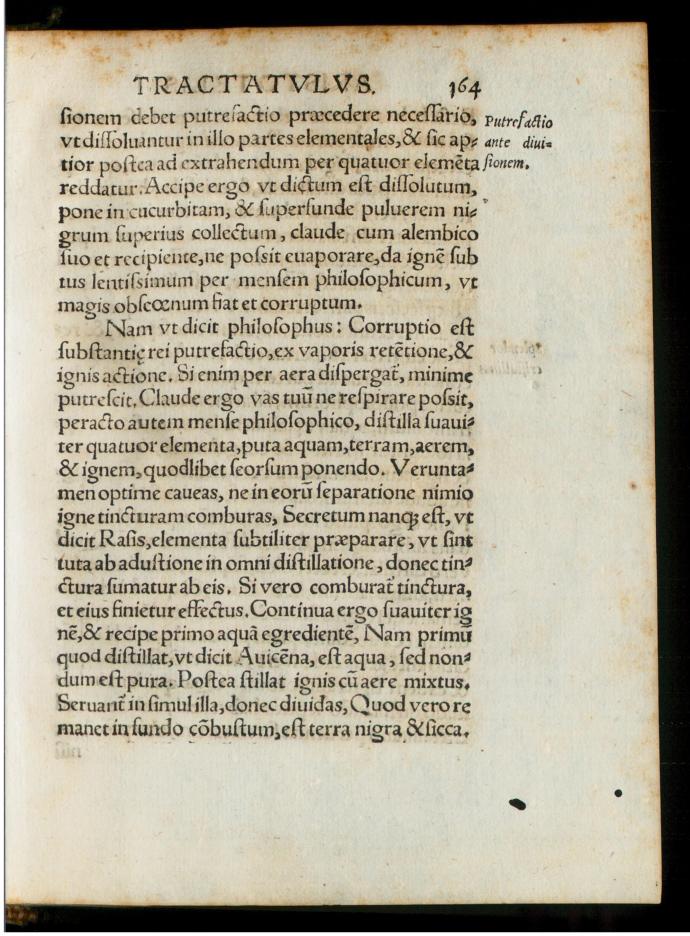 TRACTATVLVS. 164
ſionem debet putrefactio præcedere neceſſario,
vt diſſoluantur in illo partes elementales, & ſic ap⸗
tior poſtea ad extrahendum per quatuor elemẽta
reddatur. Accipe ergo vt dictum eſt diſſolutum,
pone in cucurbitam, & ſuperfunde puluerem ni⸗
grum ſuperius collectum, claude cum alembico
ſuo et recipiente, ne poſsit euaporare, da ignẽ ſub
tus lentiſsimum per menſem philoſophicum, vt
magis obſcœnum fiat et corruptum.
Nam vt dicit philoſophus: Corruptio eſt
ſubſtantię rei putrefactio, ex vaporis retẽtione, &
ignis actione. Si enim per aera diſpergat̃, minime
putreſcit. Claude ergo vas tuũ ne reſpirare poſsit,
peracto autem menſe philoſophico, diſtilla ſuaui⸗
ter quatuor elementa, puta aquam, terram, aerem,
& ignem, quodlibet ſeorſum ponendo. Verunta⸗
men optime caueas, ne in eorũ ſeparatione nimio
igne tincturam comburas, Secretum nanqꝫ eſt, vt
dicit Raſis, elementa ſubtiliter præparare, vt ſint
tuta ab aduſtione in omni diſtillatione, donec tin⸗
ctura ſumatur ab eis. Si vero comburat̃ tinctura,
et eius finietur effectus. Continua ergo ſuauiter ig
nẽ, & recipe primo aquã egredientẽ, Nam primũ
quod diſtillat, vt dicit Auicẽna, eſt aqua, ſed non⸗
dum eſt pura. Poſtea ſtillat ignis cũ aere mixtus.
Seruant̃ in ſimul illa, donec diuidas, Quod vero re
manet in fundo cõbuſtum, eſt terra nigra & ſicca.
Putrefactio
ante diui⸗
ſionem.